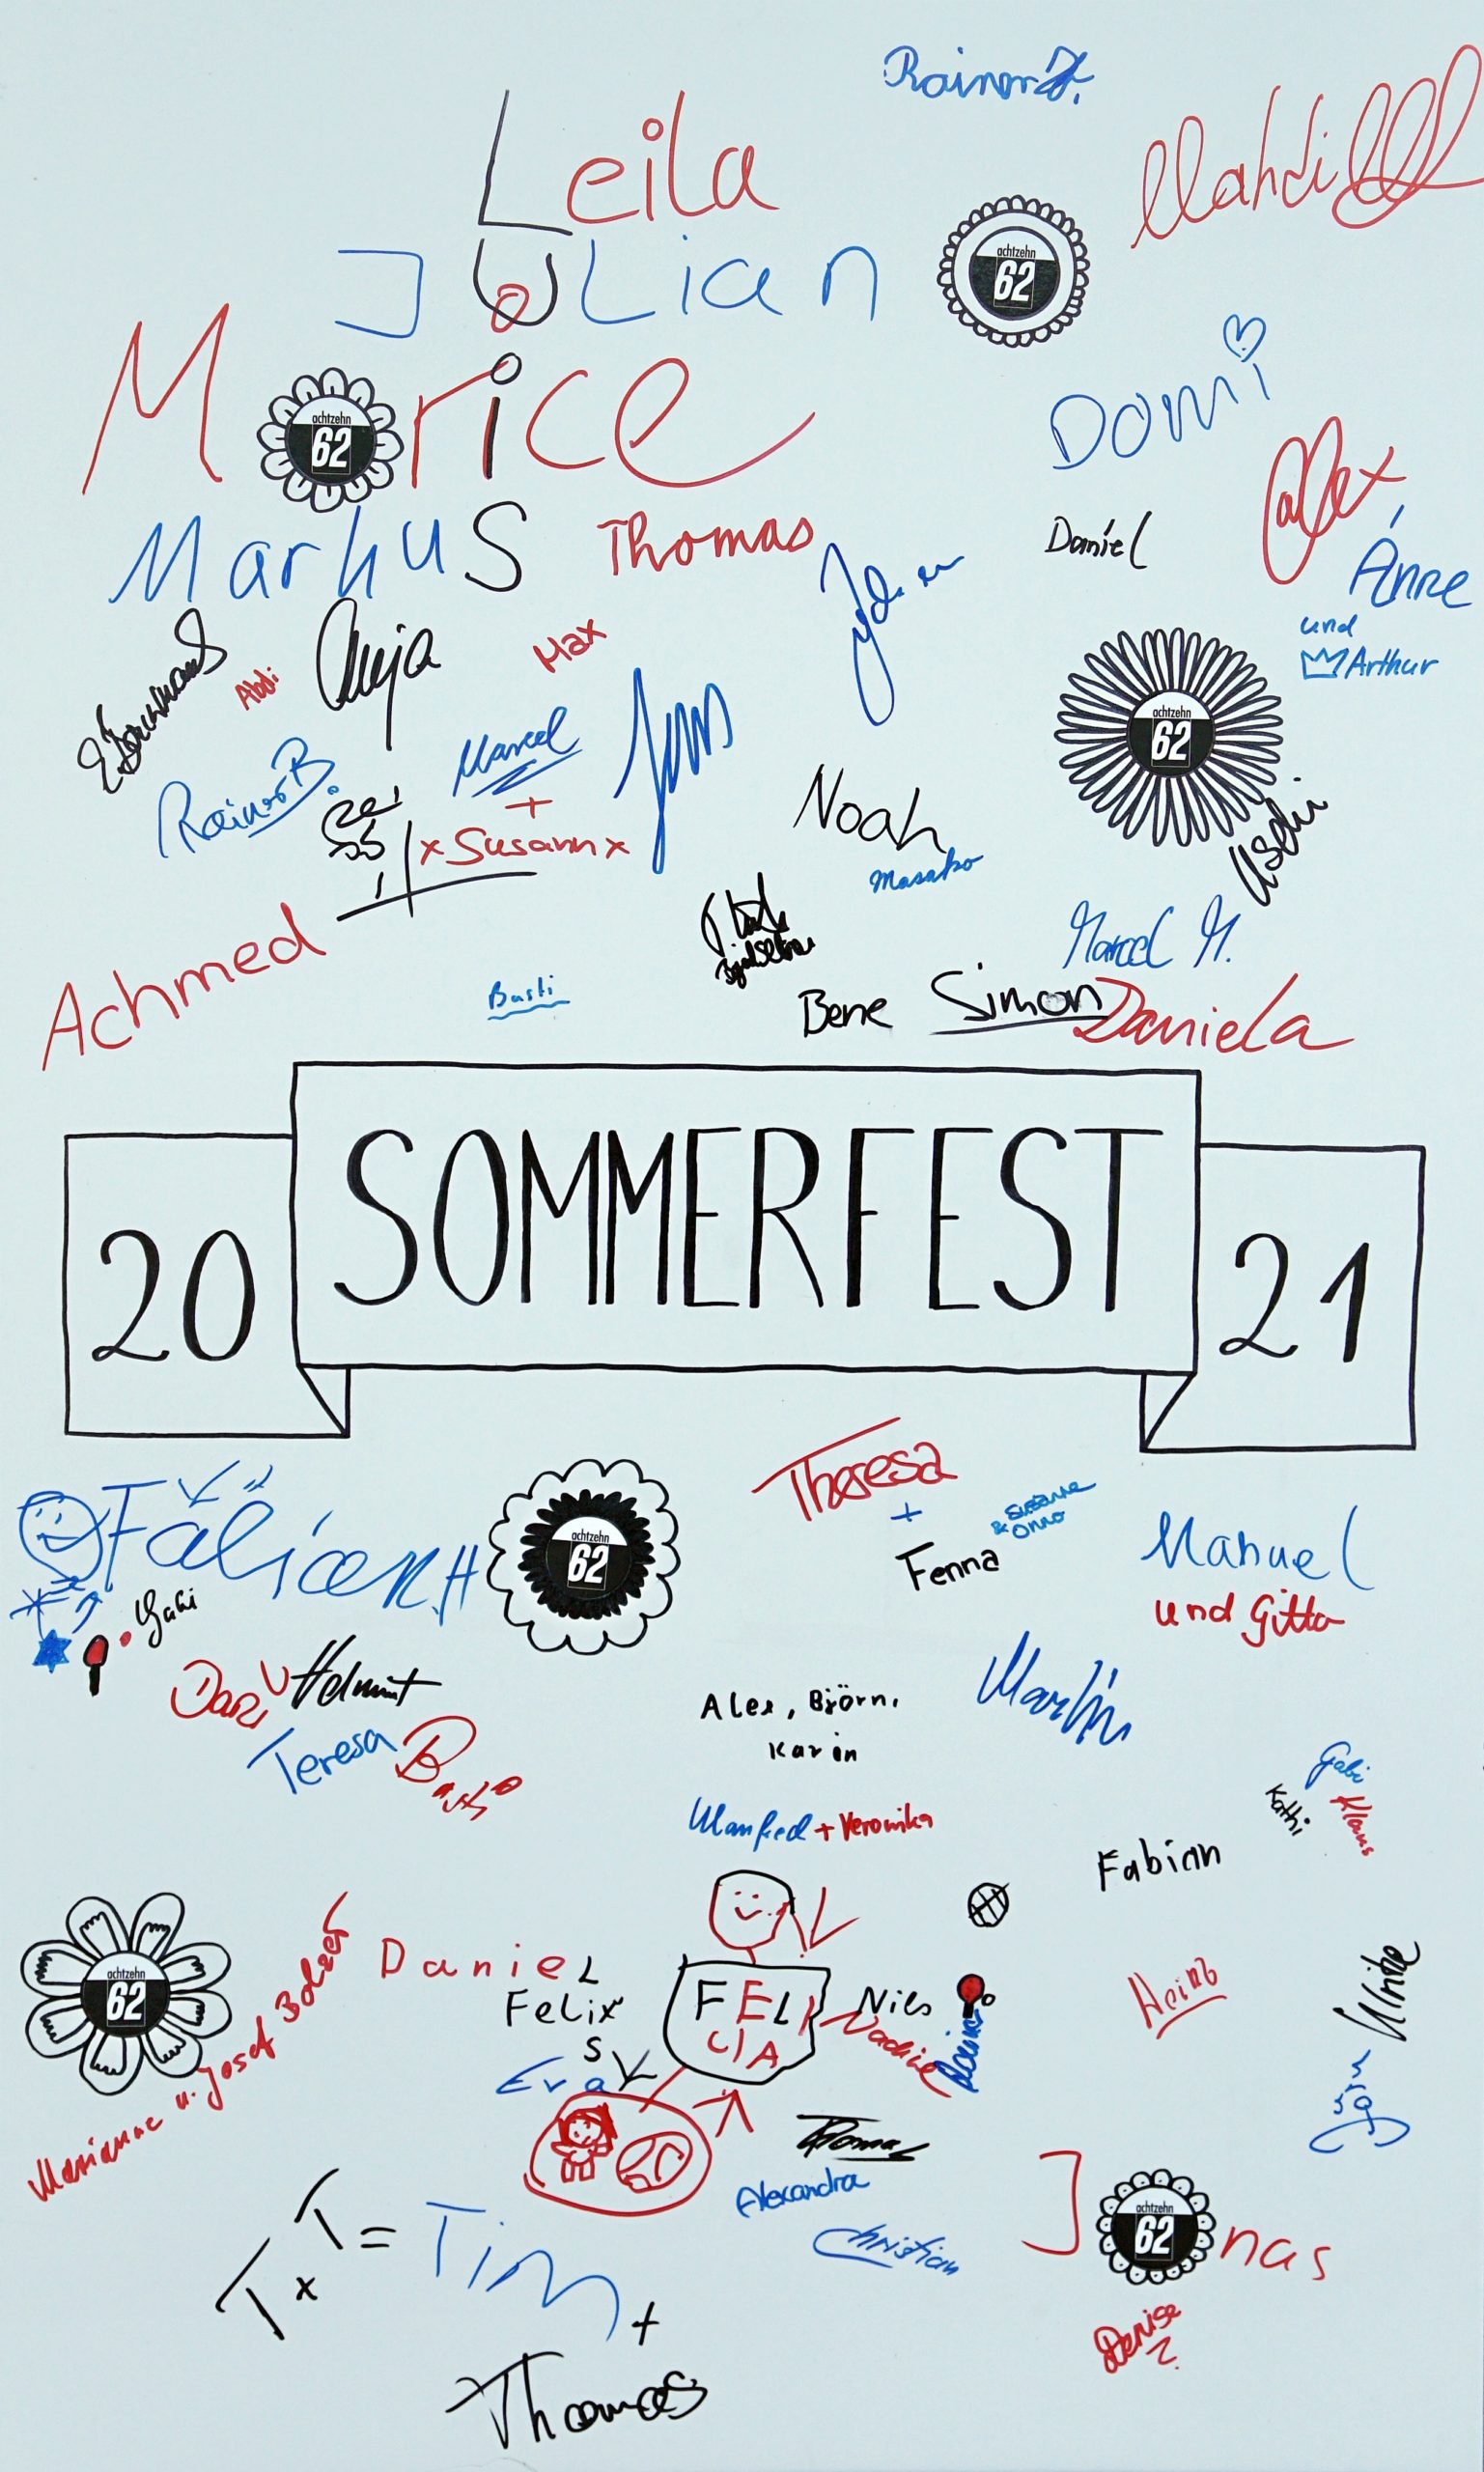 Rainer H.
Leila
Mahdi
Julian
achtzehn
62
Morice
achtzehn
62
Domi
Alex
Markus
Thomas
Daniel
Anne
und
Arthur
Abdi
Anja
Max
achtzehn
62
Rainer B.
Marcel
+
x Susann x
Jens
Noah
Masako
Achmed
Basti
Marcel M.
Bene
Simon
Daniela
20 SOMMERFEST 21
Theresa
+
Fenna
& Susanne
Onno
Fabian H
achtzehn
62
Manuel
und Gitta
Gabi
Helmut
Teresa
Basti
Alex, Björn,
Karin
Martin
Gabi
Kathi
Klaus
Manfred + Veronika
Fabian
achtzehn
62
Marianne u. Josef Bolzer
Daniel
Felix
S
Eva
FELI
CIA
Nils
Nadine
Heinz
Ulrike
Jörg
Thomas
Alexandra
Christian
T x T = Tim
+
Thomas
Jonas
achtzehn
62
Denise